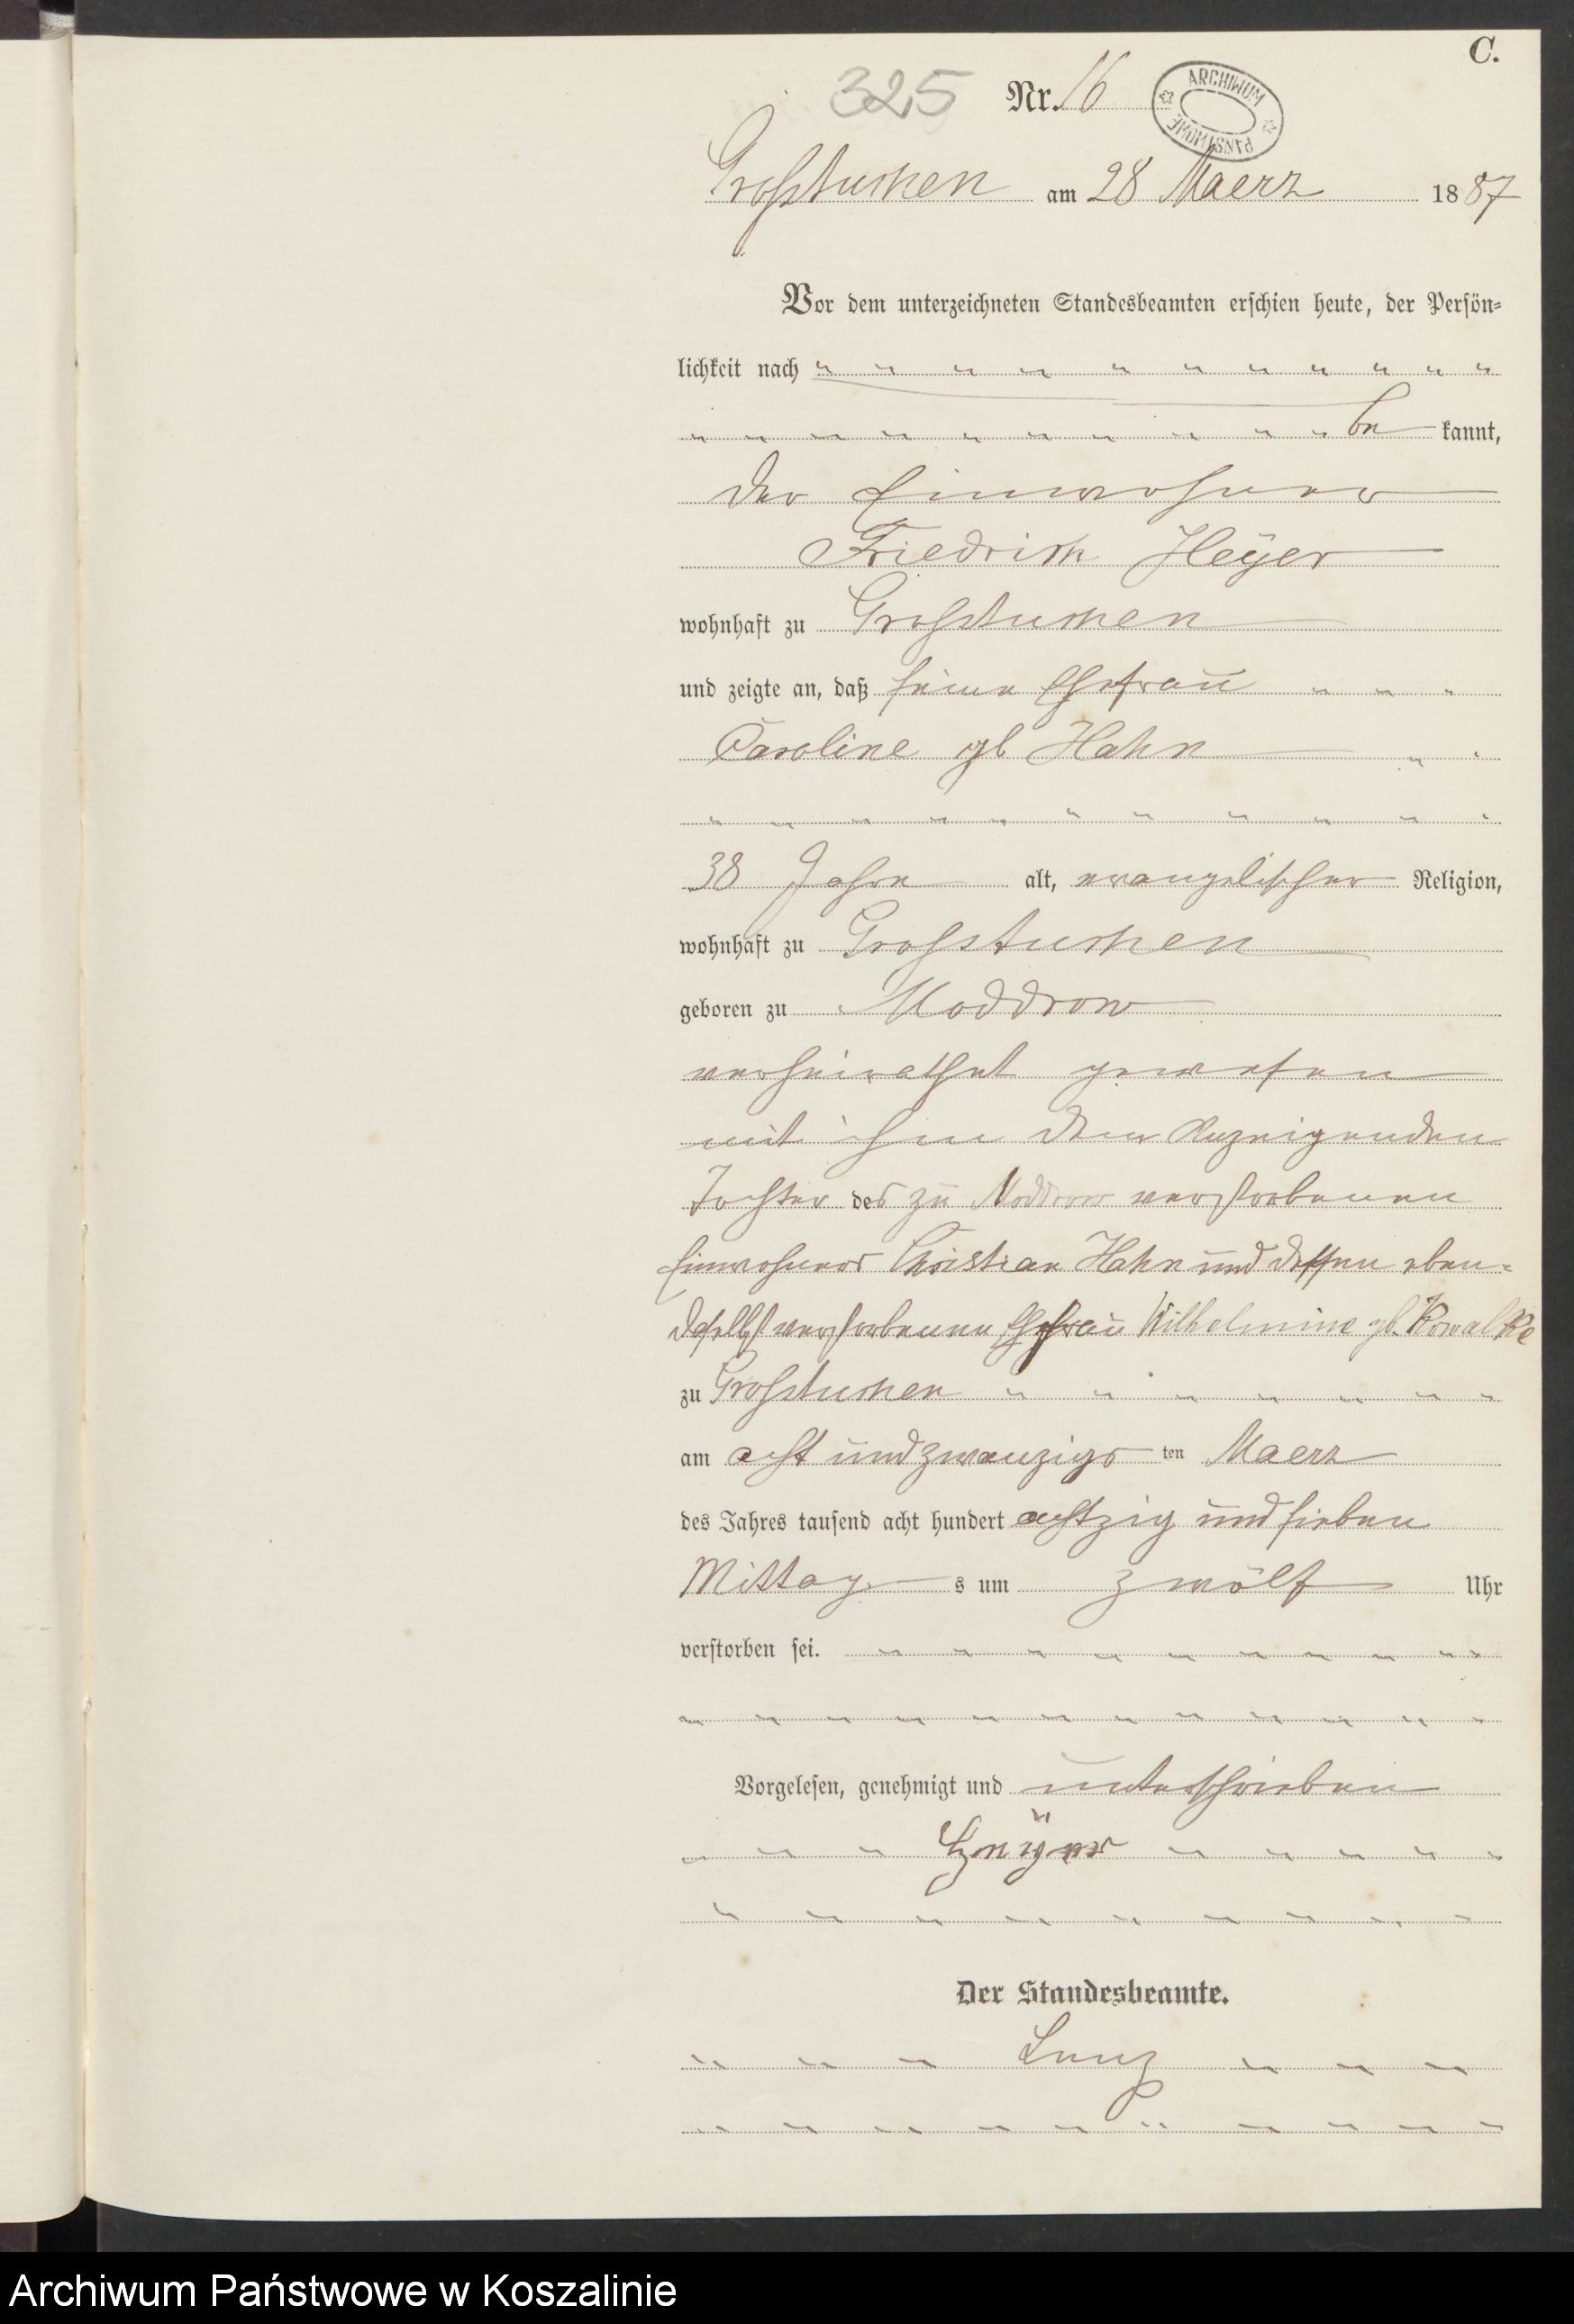 C.
325 Nr. 16
ARCHIWUM PAŃSTWOWE
Großtuchen am 28 Maerz 1887
Vor dem unterzeichneten Standesbeamten erschien heute, der Persön=
lichkeit nach
be kannt,
der Einwohner
Friedrich Heÿer
wohnhaft zu Großtuchen
und zeigte an, daß seine Ehefrau
Caroline gb Hahn
38 Jahre alt, evangelischer Religion,
wohnhaft zu Großtuchen
geboren zu Moddrow
verheirathet gewesen
mit ihm dem Anzeigenden
Tochter des zu Moddrow verstorbenen
Einwohners Christian Hahn und dessen eben=
daselbst verstorbenen Ehefrau Wilhelmine gb. Kowalke
zu Großtuchen
am acht und zwanzigs ten Maerz
des Jahres tausend acht hundert achtzig und sieben
Mittag s um zwölf Uhr
verstorben sei.
Vorgelesen, genehmigt und unterschrieben
Heÿer
Der Standesbeamte.
Lenz
Archiwum Państwowe w Koszalinie